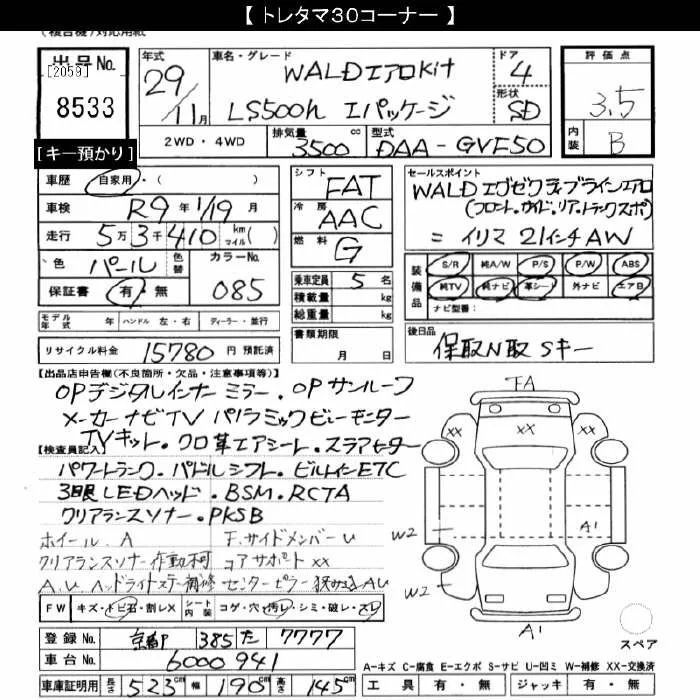 【 トレタマ30コーナー 】
(複合機)対応用紙
出品No.
[2059]
8533
[キー預かり]
年式
29/11月
車名・グレード
WALDエアロKit
LS500h Iパッケージ
ドア
4
形状
SD
評価点
3.5
内装
B
2WD・4WD
排気量
3500 cc
型式
DAA-GVF50
車歴
自家用・( )
車検
R9年1/19月
走行
5万3千410 km マイル( )
色
パール
色替
カラーNo.
085
保証書
有・無
シフト
FAT
冷房
AAC
燃料
G
乗車定員 5 名
積載量 kg
総重量 kg
セールスポイント
WALDエグゼクティブラインエアロ
(フロント.サイド.リア.トランクスポ)
=イリマ 21インチAW
装備品
S/R 純A/W P/S P/W ABS
純TV 純ナビ 革シート 外ナビ エアB
ナビ型番:
モデル年式 年 ハンドル 左・右 ディーラー・並行
リサイクル料金 15780 円 預託済
書類期限
月 日
後日品
保取N取 Sキー
【出品店申告欄(不良箇所・欠品・注意事項等)】
OPデジタルインナーミラー.OPサンルーフ
メーカーナビTV パノラミックビューモニター
TVキット.クロ革エアシート.ステアヒーター
【検査員記入】
パワートランク.パドルシフト.ビルトインETC
3眼LEDヘッド.BSM.RCTA
クリアランスソナー.PKSB
ホイール.A F.サイドメンバーU
クリアランスソナー作動不可 コアサポートXX
A.U ヘッドライトステー補修 センターピラー挟み込AU
FW キズ・トビ石・割レX シート内装 コゲ・穴・汚レ・シミ・破レ・スレ
登録No. 京都P 385 た 7777
車台No. 6000941
車庫証明用 長さ 523cm 幅 190cm 高さ 145cm
FA
XX
XX
XX
W2
A1
W2
A1
スペア
A-キズ C-腐食 E-エクボ S-サビ U-凹ミ W-補修 XX-交換済
工具 有・無 ジャッキ 有・無